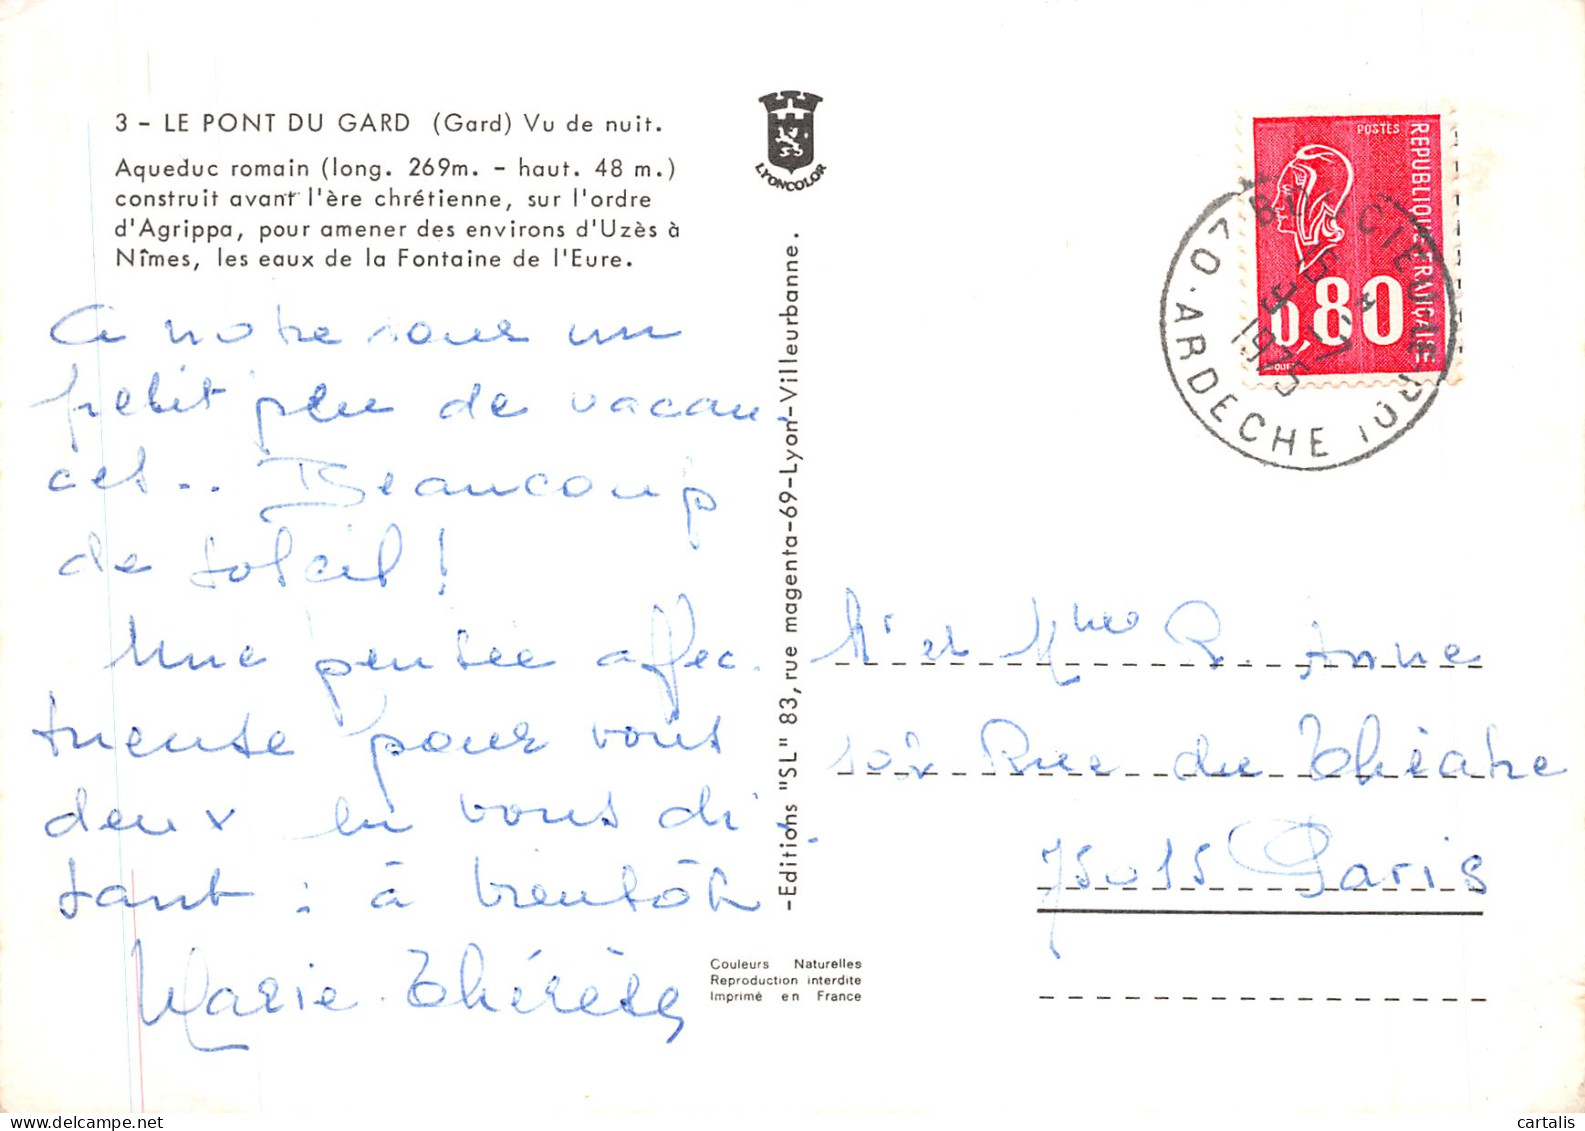 3 - LE PONT DU GARD (Gard) Vu de nuit.
Aqueduc romain (long. 269m. - haut. 48 m.)
construit avant l'ère chrétienne, sur l'ordre
d'Agrippa, pour amener des environs d'Uzès à
Nîmes, les eaux de la Fontaine de l'Eure.
A notre tour un
petit peu de vacan-
ces.. Beaucoup
de soleil !
Une pensée affec-
tueuse pour vous
deux en vous di-
sant : à bientôt
Marie-Thérèse
LYONCOLOR
-Editions "ISL" 83, rue magenta-69-Lyon-Villeurbanne.
Couleurs Naturelles
Reproduction interdite
Imprimé en France
POSTES
REPUBLIQUE FRANÇAISE
0,80
07 ARDECHE
15 -17
9
1975
Mr et Mme R. Anne
102 Rue du Théâtre
75015 Paris
cartalis